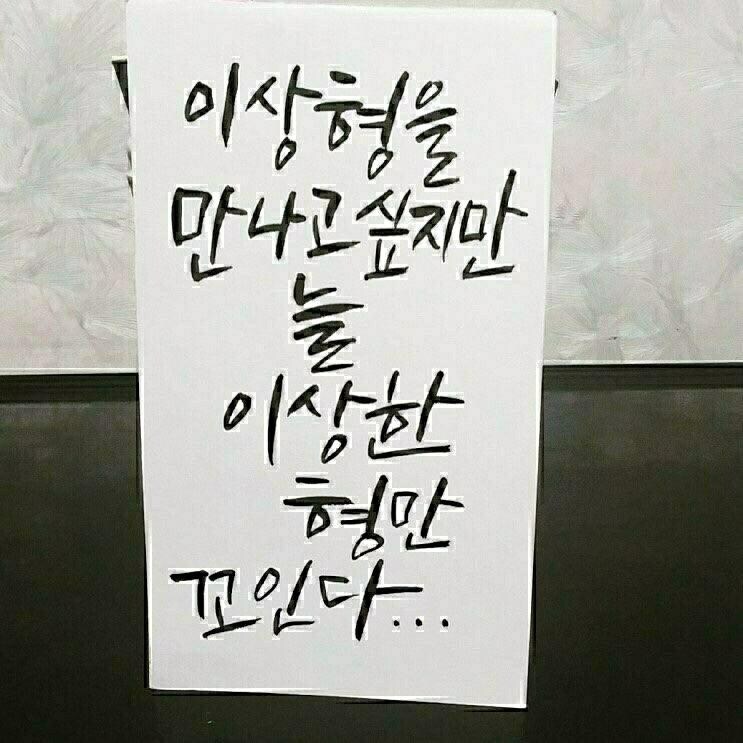 이상형을
만나고 싶지만
늘
이상한
형만
꼬인다...